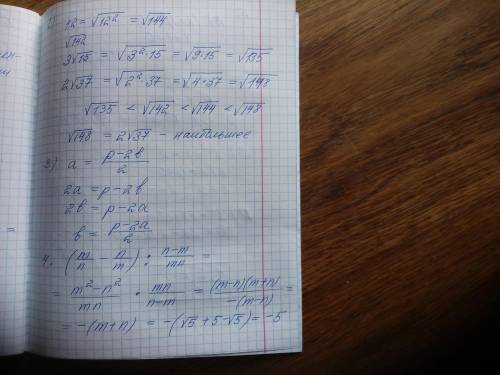 2) 12 = √12² = √144
√142
3√15 = √3²·15 = √9·15 = √135
2√37 = √2²·37 = √4·37 = √148
√135 < √142 < √144 < √148
√148 = 2√37 – наибольшее
3) a = (p-2b)/2
2a = p-2b
2b = p-2a
b = (p-2a)/2
4. (m/n - n/m) : (n-m)/mn =
= (m²-n²)/mn · mn/(n-m) = (m-n)(m+n)/-(m-n) =
= -(m+n) = -(√5+5-√5) = -5